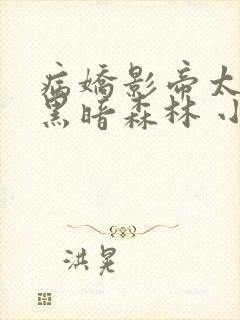 病嬌影帝太
黑暗森林 小
洪晃